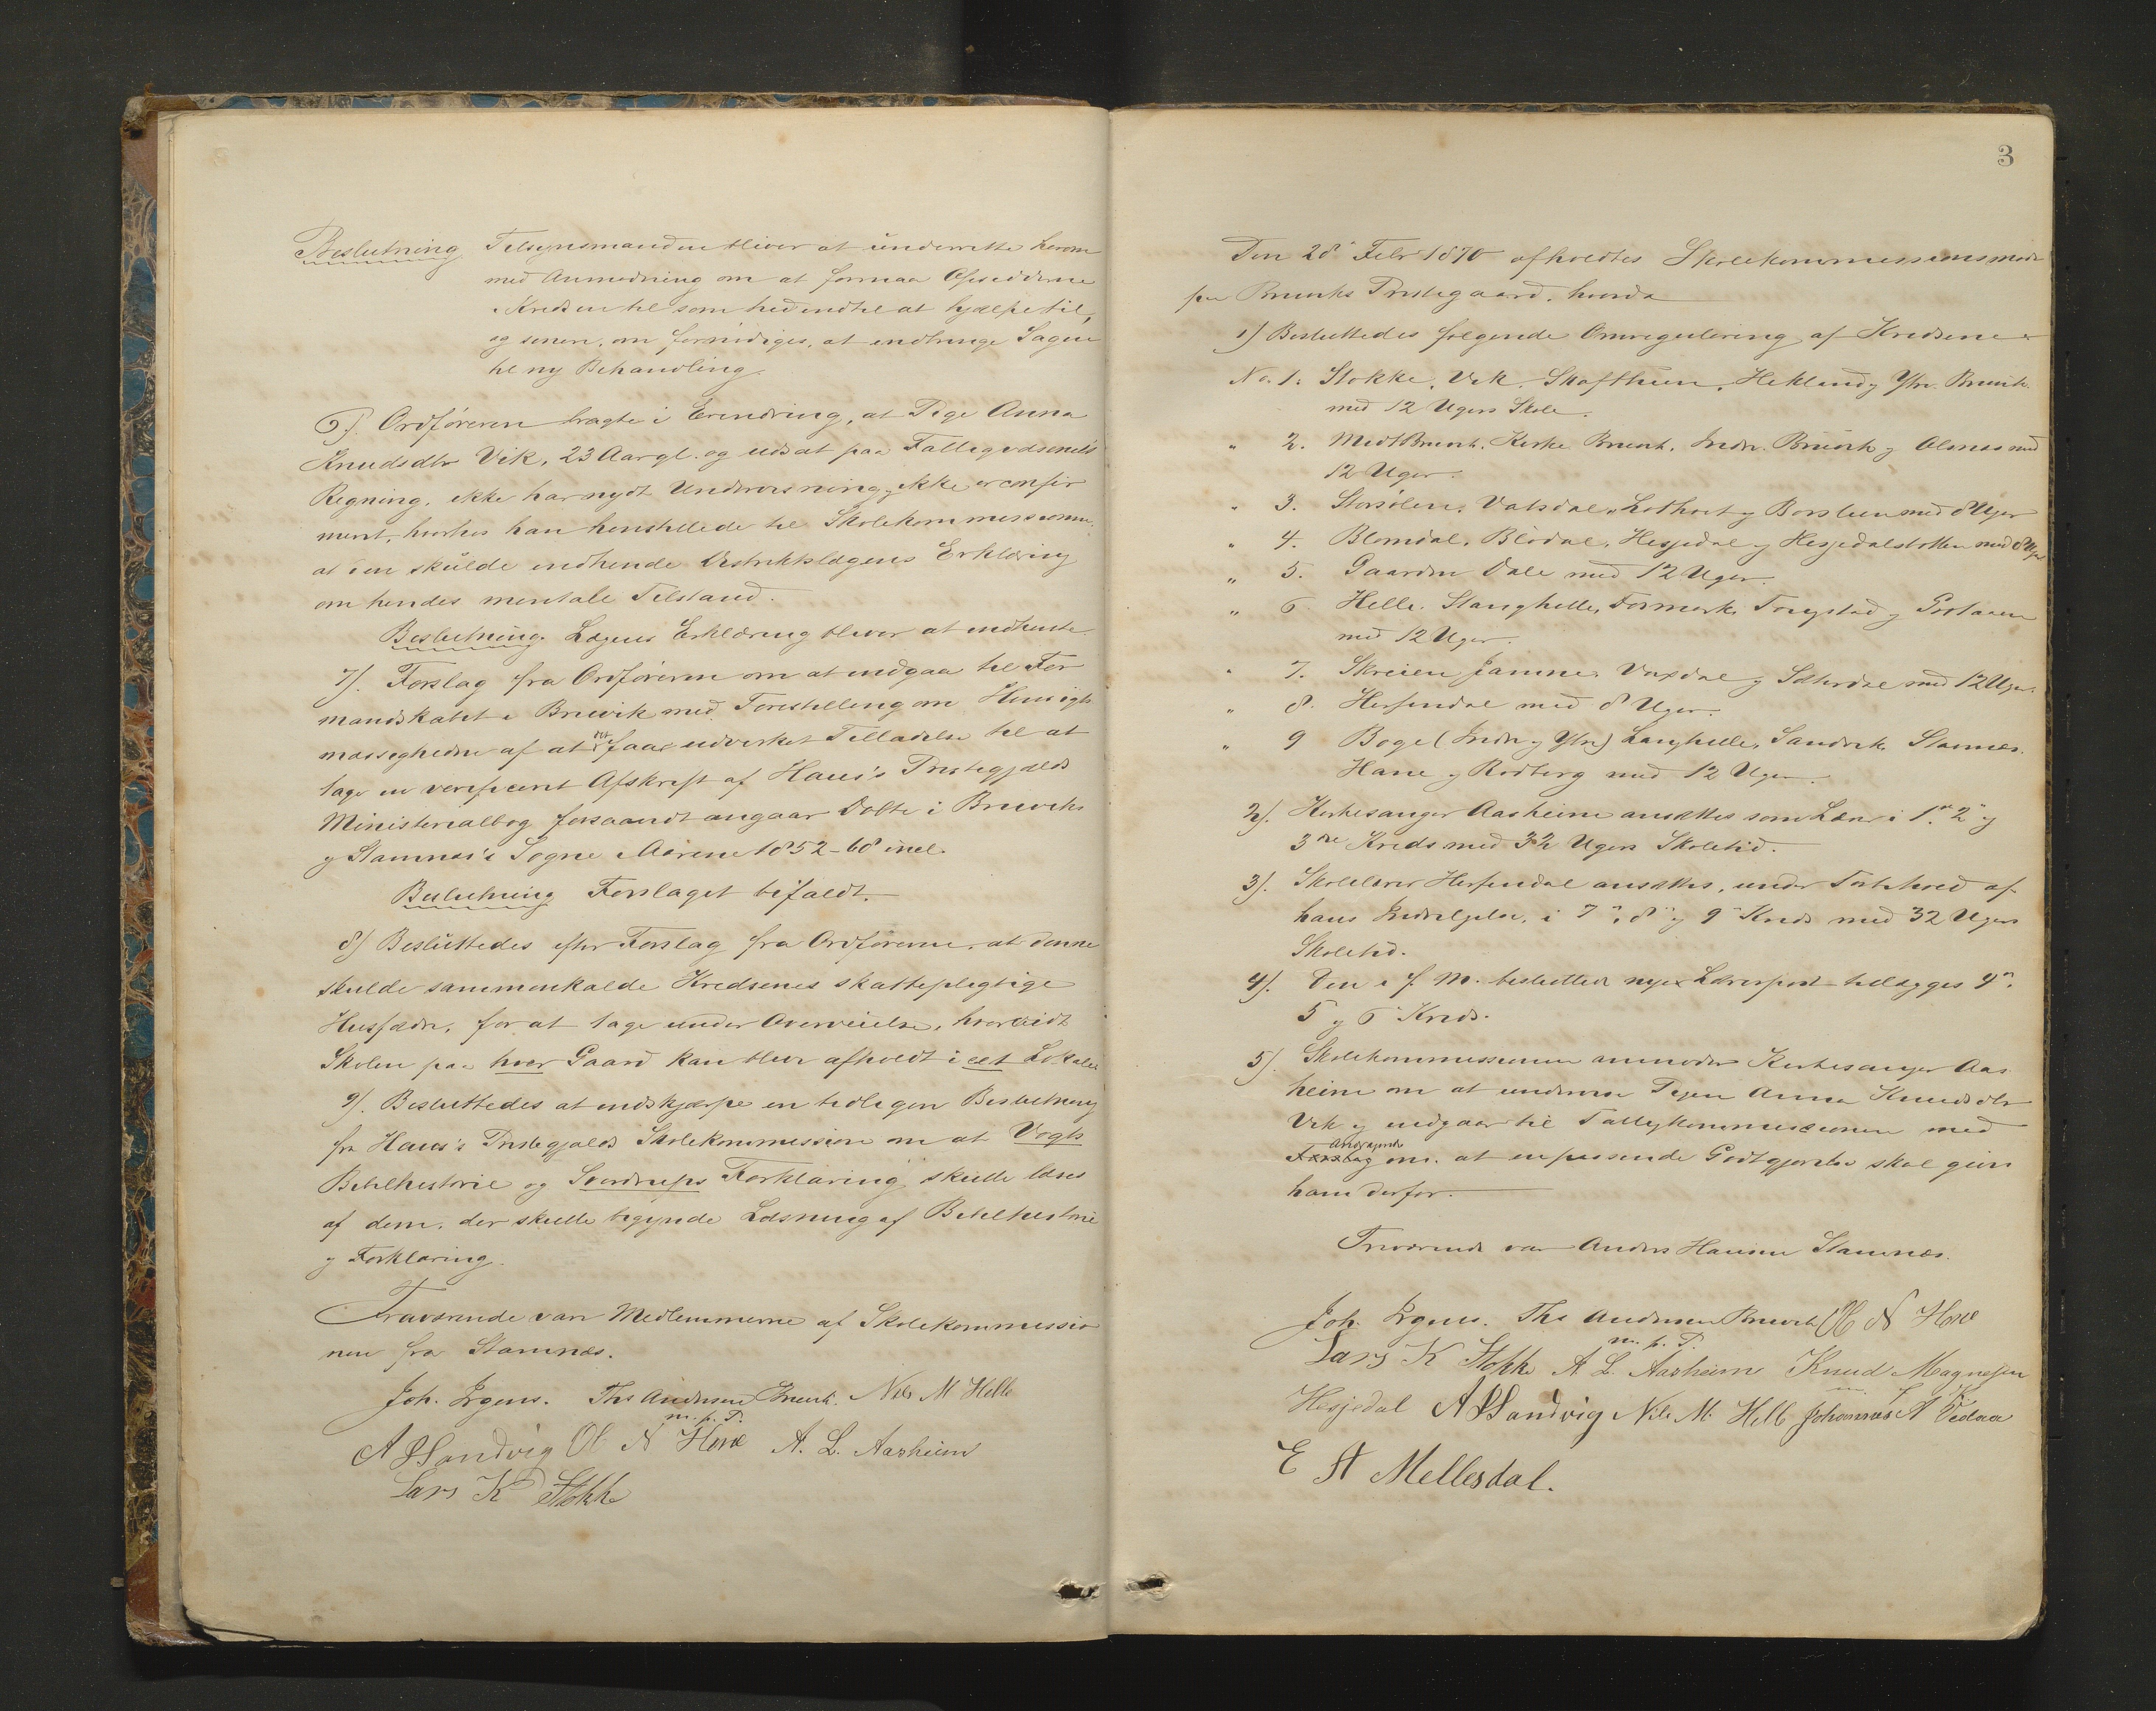 Beslutning. Tilsynsmanden bliver at underrette herom
med Anmodning om at formaa Opsidderne
i Kredsen til som hidindtil at hjælpe til,
og senere, om fornödiges, at indbringe Sagen
til ny Behandling.
6). Ordföreren bragte i Erindring, at Pige Anna
Knudsdtr Vik, 23 Aar gl. og udsat paa Fattigvæsenets
Regning, ikke har nydt Underviisning, ikke er confir
meret, hvorfor han henstillede til Skolekommissionen,
at den skulde indhente Distriktslægens Erklæring
om hendes mentale Tilstand.
Beslutning. Lægens Erklæring bliver at indhente.
7). Forslag fra Ordföreren om at indgaa til For
mandskabet i Bruvik med Forestilling om Hensigts
mæssigheden af at det faar udvirket Tilladelse til at
tage en verificeret Afskrift af Haus's Præstegjælds
Ministerialbog forsaavidt angaar Döbte i Bruviks
og Stamnes's Sogne i Aarene 1852-68 incl.
Beslutning Forslaget bifaldt.
8) Besluttedes efter Forslag fra Ordföreren, at denne
skulde sammenkalde Kredsenes skattepligtige
Husfædre, for at tage under Overveielse, hvorvidt
Skolen paa hver Gaard kan blive afholdt i eet Lokale.
9). Besluttedes at indskjærpe en tidligere Beslutning
fra Haus's Præstegjælds Skolekommission om at Vogts
Bibelhistorie og Sverdrups Forklaring skulle læses
af dem, der skulle begynde Læsning af Bibelhistorie
og Forklaring.
Fraværende var Medlemmerne af Skolekommissio
nen fra Stamnæs.
Joh. Irgens. Ths Andersen Bruvik. Nils M Helle
m. p. P.
A Sandvig Ol N Hove A. L. Aasheim
Lars K Stokke
3
Den 28de Febr 1890 afholdtes Skolekommissionsmöde
paa Bruviks Præstegaard, hvorda
1) Besluttedes fölgende Omregulering af Kredsene:
No. 1. Stokke, Vik, Skaftun, Hekland og Ytre Bruvik
med 12 Ugers Skole.
" 2. Midt Bruvik, Kirke Bruvik, Indre Bruvik og Olsnæs med
12 Uger.
" 3. Storsölen, Vatsdal, Lothvet og Borslien med 8 Uger
" 4. Blomdal, Blödal, Hesjedal og Hesjedalsbotten med 8 Uger
" 5. Gaarden Dale med 12 Uger.
" 6 Helle, Stanghelle, Fosmark, Tongstad og
med 12 Uger.
" 7. Skreien Jamne, Vaxdal og Sæterdal med 12 Uger.
" 8. Herfindal med 8 Uger.
" 9 Boge (Indre og Ytre) Langhelle, Sandvik, Stamnæs,
Hane og Rödberg med 12 Uger.
2). Kirkesanger Aasheim ansættes som Lærer i 1ste, 2den og
3die Kreds med 32 Ugers Skoletid.
3). Skolelærer Herfindal ansættes, under Forbehold af
hans Indvilgelse, i 7de, 8de og 9de Kreds med 32 Ugers
Skoletid.
4). Den i f. M. besluttede nye Lærerpost tillægges 4de,
5 og 6 Kreds.
5). Skolekommissionen anmoder Kirkesanger Aas
heim om at undervise Pigen Anna Knudsdtr
Vik og indgaar til Fattigkommissionen med
Andragende
Forslag om, at en passende Godtgjørelse skal gives
ham derfor.
Fraværende var Anders Hansen Stamnæs.
Joh. Irgens. Ths Andersen Bruvik Ol N Hove
m. p. P.
Lars K Stokke A. L. Aasheim Knud Magnesen
Hesjedal A Sandvig Nils M. Helle Johannes A Vedaa
E A Mellesdal.